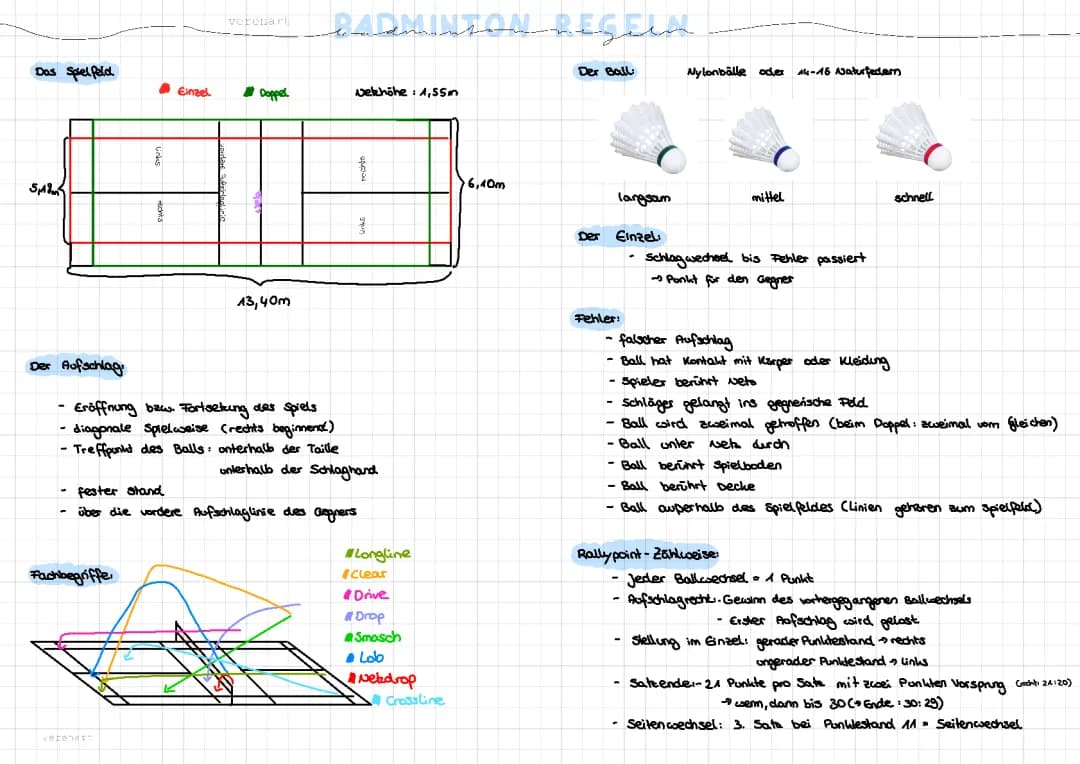 verenart
BADMINTON REGELN
badminton regeln
Das Spielfeld
Einzel
Doppel
Netzhöhe : 1,55m
links
rechts
vordere Aufschlaglinie
Netz
rechts
links
5,18m
6,10m
13,40m
Der Aufschlag:
- Eröffnung bzw. Fortsetzung des Spiels
- diagonale Spielweise (rechts beginnend)
- Treffpunkt des Balls: unterhalb der Taille
unterhalb der Schlaghand
- fester Stand
- über die vordere Aufschlaglinie des Gegners
Fachbegriffe:
Longline
Clear
Drive
Drop
Smasch
Lob
Netzdrop
Crossline
verenart
Der Ball:
Nylonbälle oder 14-16 Naturfedern
langsam
mittel
schnell
Der Einzel:
- Schlagwechsel bis Fehler passiert
→ Punkt für den Gegner
Fehler:
- falscher Aufschlag
- Ball hat Kontakt mit Körper oder Kleidung
- Spieler berührt Netz
- Schläger gelangt ins gegnerische Feld
- Ball wird zweimal getroffen (beim Doppel: zweimal vom gleichen)
- Ball unter Netz durch
- Ball berührt Spielboden
- Ball berührt Decke
- Ball außerhalb des Spielfeldes (Linien gehören zum Spielfeld)
Rallypoint-Zählweise:
- Jeder Ballwechsel = 1 Punkt
- Aufschlagrecht: Gewinn des vorhergegangenen Ballwechsels
- Erster Aufschlag wird gelost
- Stellung im Einzel: gerader Punktestand → rechts
ungerader Punktestand → links
- Satzende:- 21 Punkte pro Satz mit zwei Punkten Vorsprung (nicht: 21:20)
→ wenn, dann bis 30 (→ Ende : 30:29)
- Seitenwechsel: 3. Satz bei Punktestand 11 = Seitenwechsel